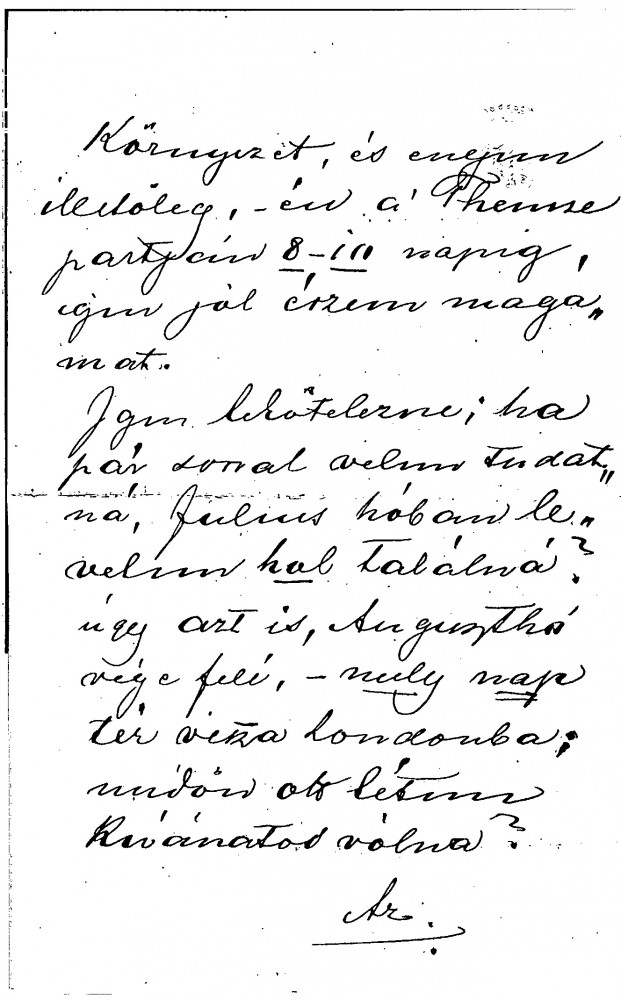 Környezet, és engem
illetőleg, - én a' Themse
partján 8-10 napig,
igen jól érzem maga„
mat.
Igen lekötelezne; ha
pár sorral velem tudat„
ná, Julius hóban le„
velem hol találná?
úgy azt is, Auguszthó
vége felé, - mely nap
tér vissza Londonba;
midőn ott létem
kivánatos vólna?
Az.